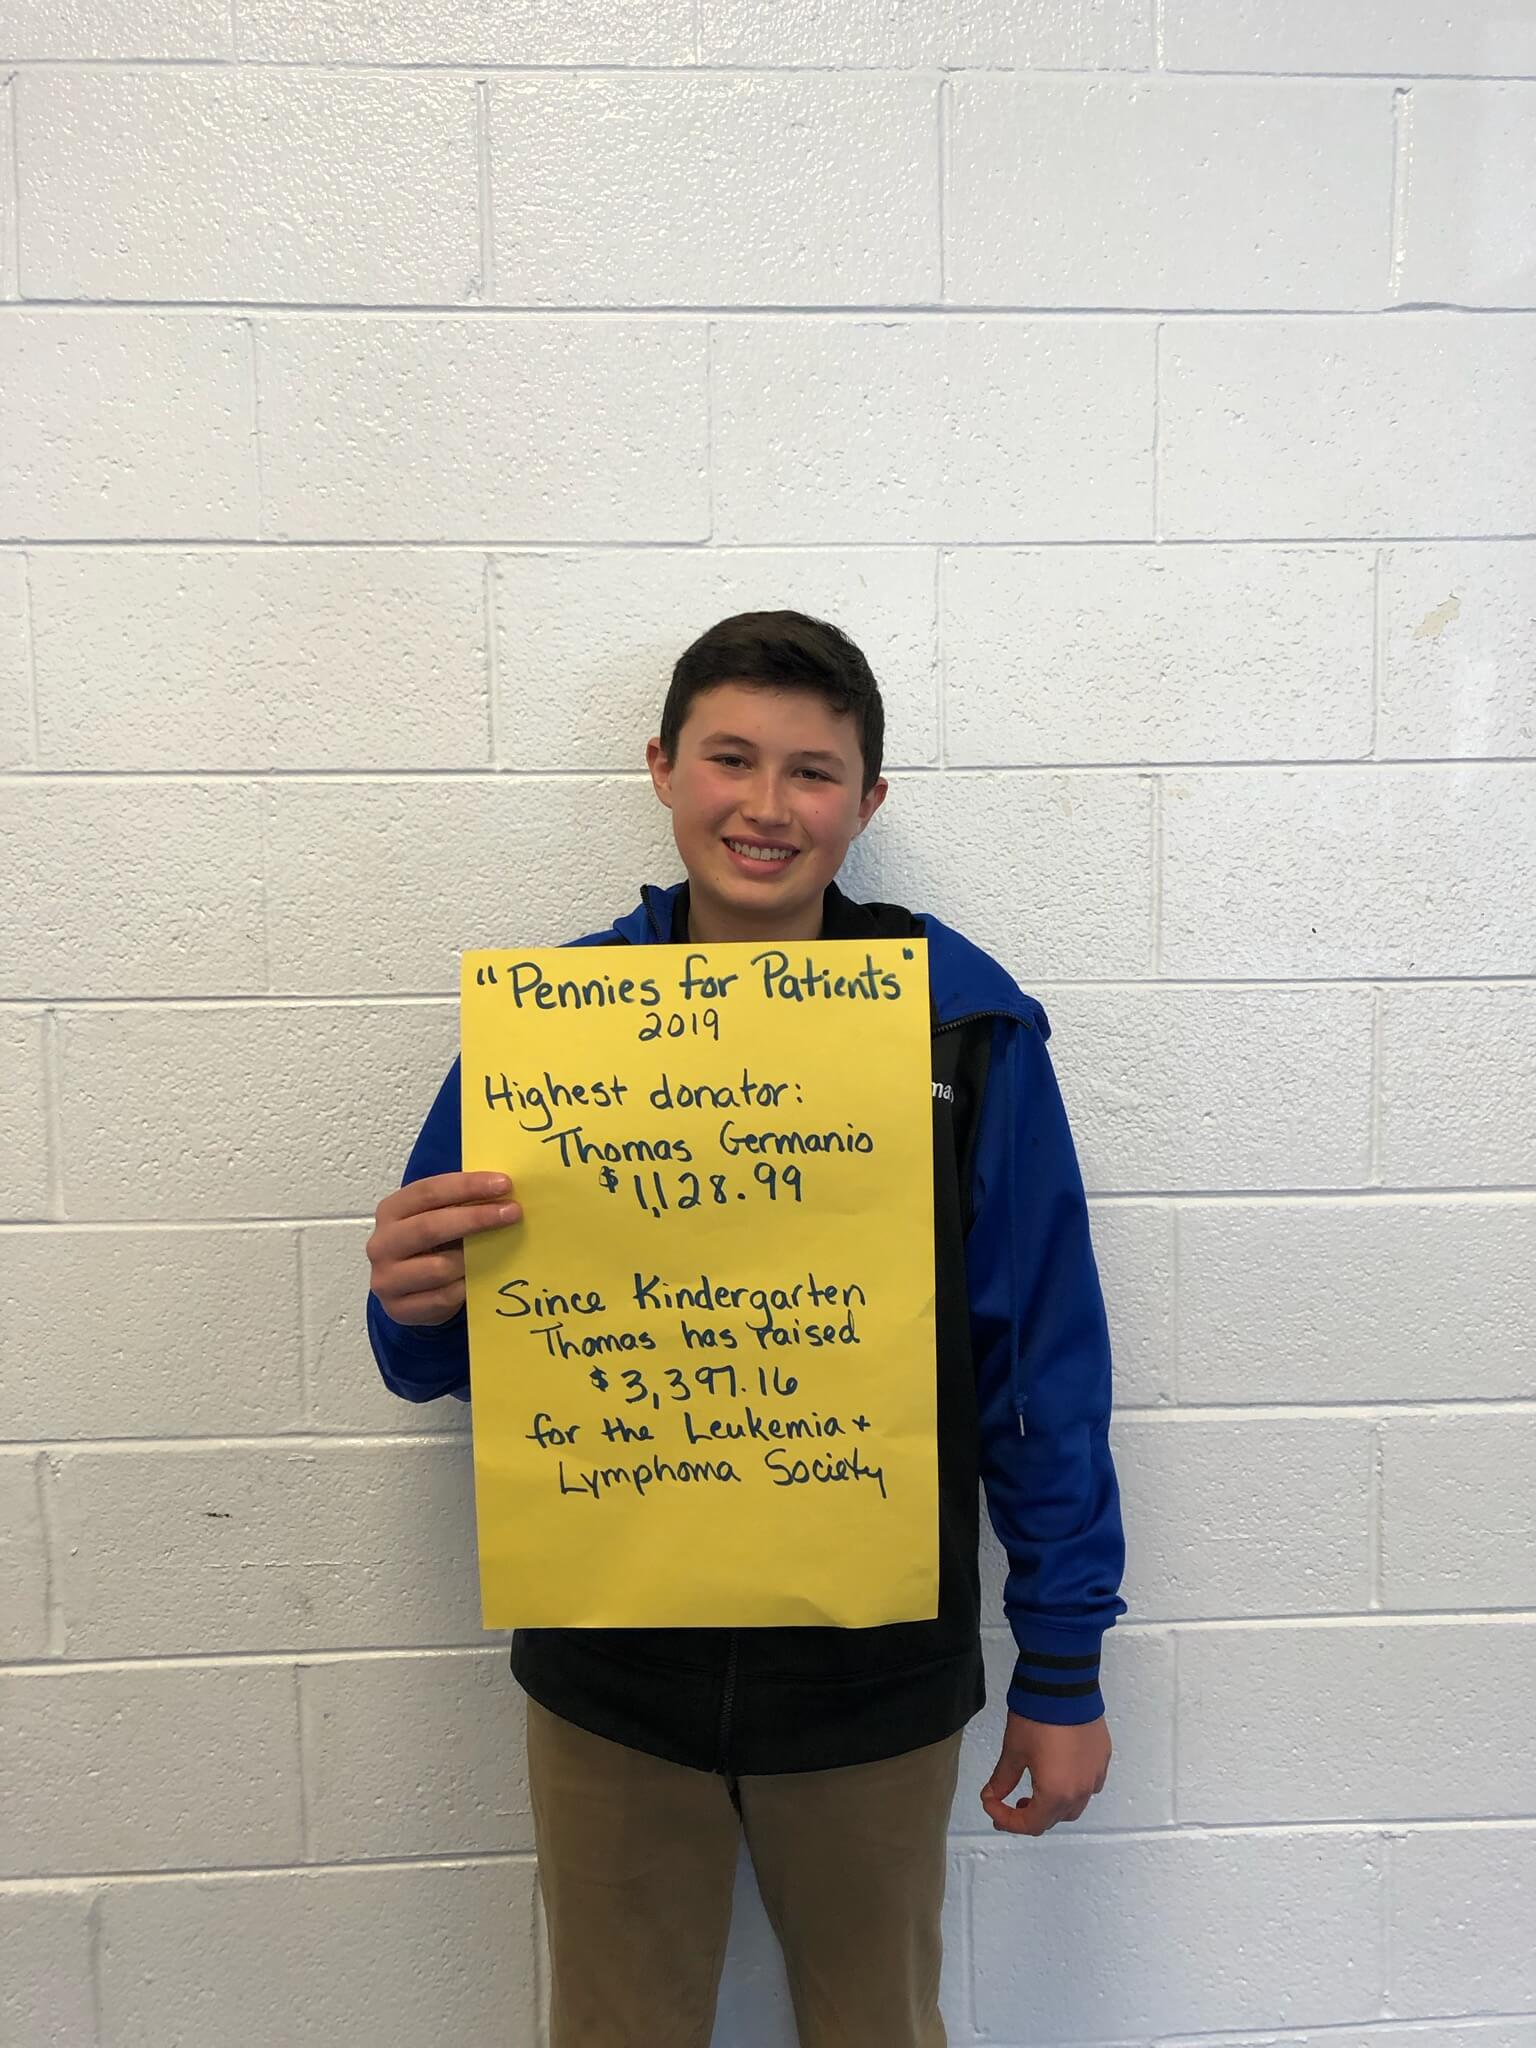 "Pennies for Patients"
2019
Highest donator:
Thomas Germanio
$1,128.99
Since Kindergarten
Thomas has raised
$3,397.16
for the Leukemia +
Lymphoma Society